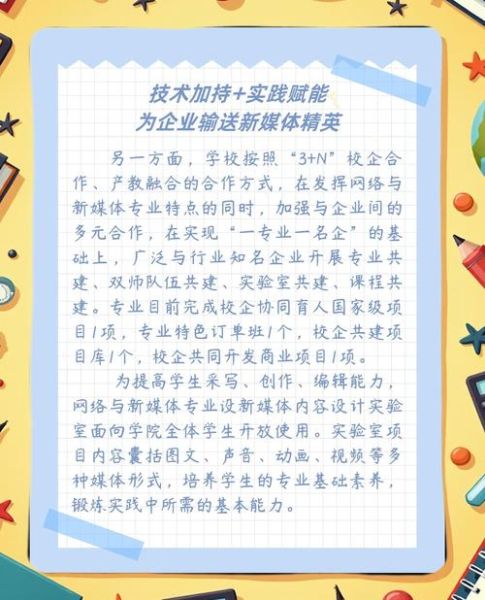 技术加持+实践赋能
为企业输送新媒体精英
另一方面，学校按照“3+N”校企合
作、产教融合的合作方式，在发挥网络与
新媒体专业特点的同时，加强与企业间的
多元合作，在实现“一专业一名企”的基
础上，广泛与行业知名企业开展专业共
建、双师队伍共建、实验室共建、课程共
建。专业目前完成校企协同育人国家级项
目1项，专业特色订单班1个，校企共建项
目库1个，校企共同开发商业项目1项。
为提高学生采写、创作、编辑能力，
网络与新媒体专业设新媒体内容设计实验
室面向学院全体学生开放使用。实验室项
目内容囊括图文、声音、动画、视频等多
种媒体形式，培养学生的专业基础素养，
锻炼实践中所需的基本能力。